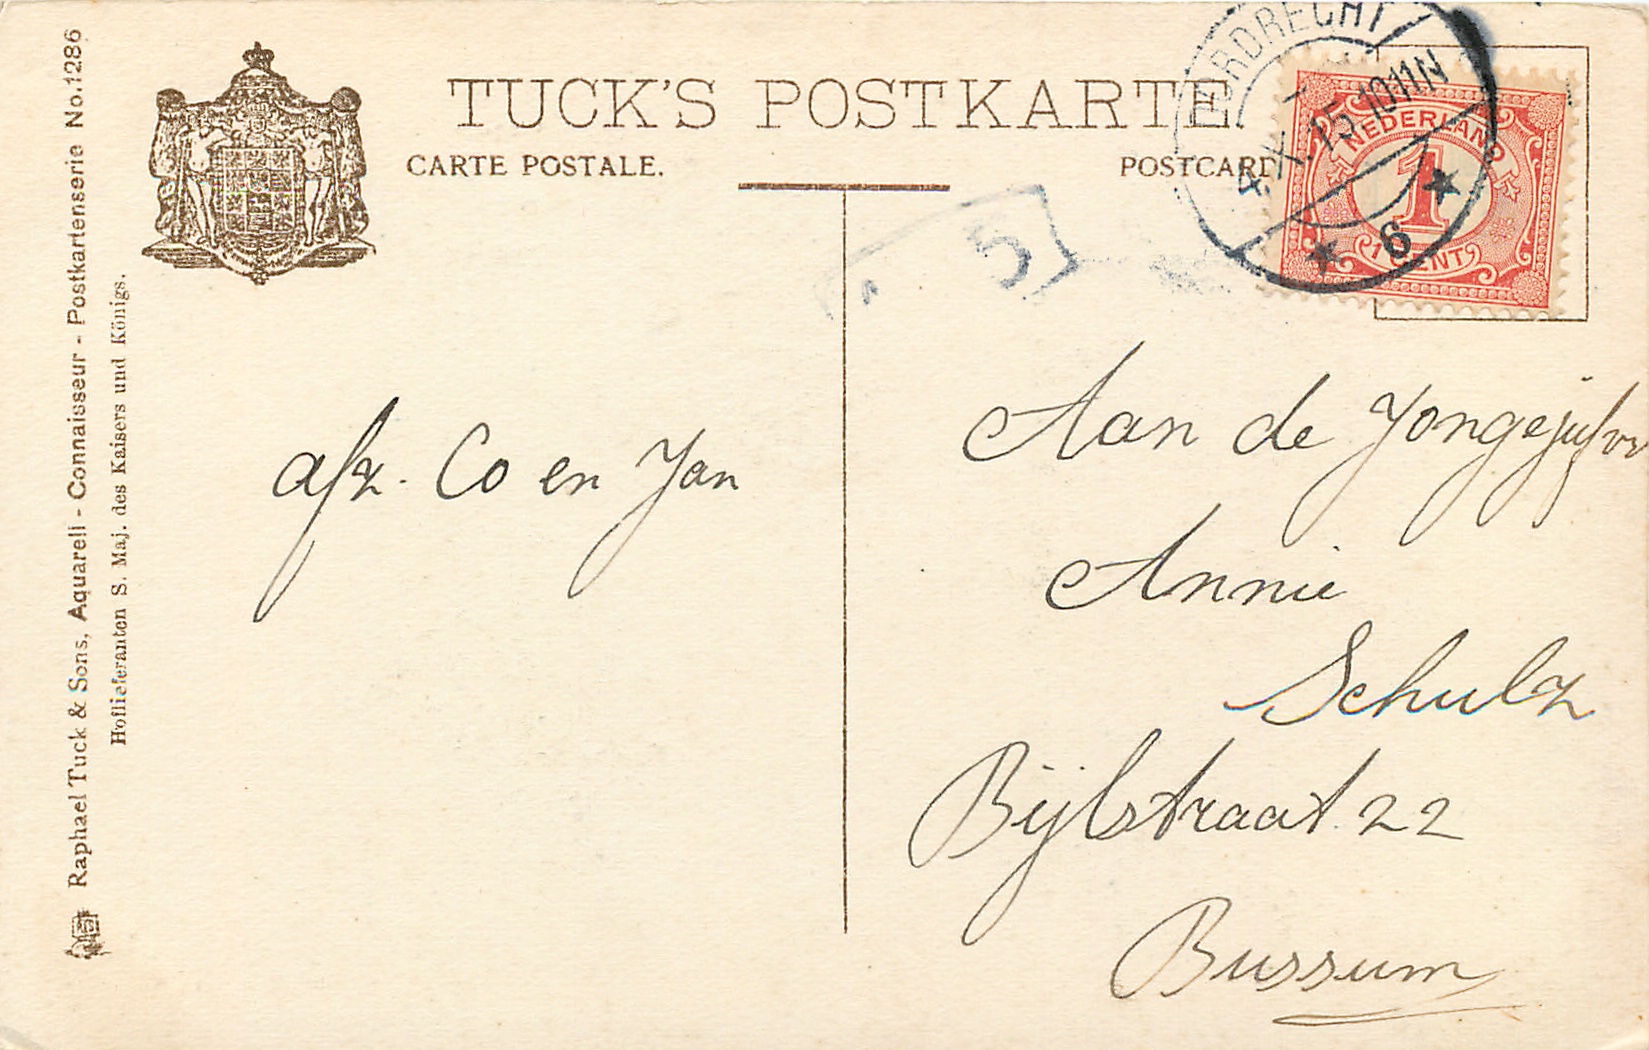 TUCK'S POSTKARTE.
CARTE POSTALE.
POSTCARD
Raphael Tuck & Sons, Aquarell - Connaisseur - Postkartenserie No.1286
Hoflieferanten S. Maj. des Kaisers und Königs.
DORDRECHT
4.X.15.1011N
6
NEDERLAND
1
1 CENT
5
afz. Co en Jan
Aan de Jongejufvr
Annie
Schulz
Bijlstraat 22
Bussum